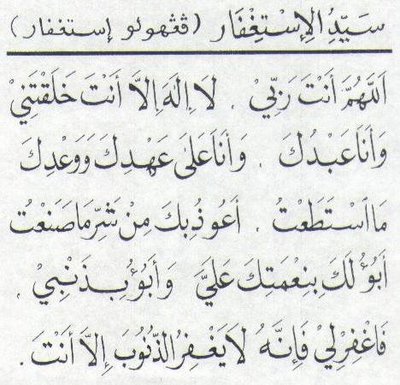 سَيِّدُ الْإِسْتِغْفَارِ (ڤڠهولو إستغفار)
اَللّٰهُمَّ أَنْتَ رَبِّيْ . لَا إِلٰهَ إِلَّا أَنْتَ خَلَقْتَنِيْ
وَأَنَا عَبْدُكَ . وَأَنَا عَلَى عَهْدِكَ وَوَعْدِكَ
مَا اسْتَطَعْتُ . أَعُوْذُ بِكَ مِنْ شَرِّ مَا صَنَعْتُ
أَبُوْءُ لَكَ بِنِعْمَتِكَ عَلَيَّ وَأَبُوْءُ بِذَنْبِيْ .
فَاغْفِرْلِيْ فَإِنَّهُ لَا يَغْفِرُ الذُّنُوْبَ إِلَّا أَنْتَ .